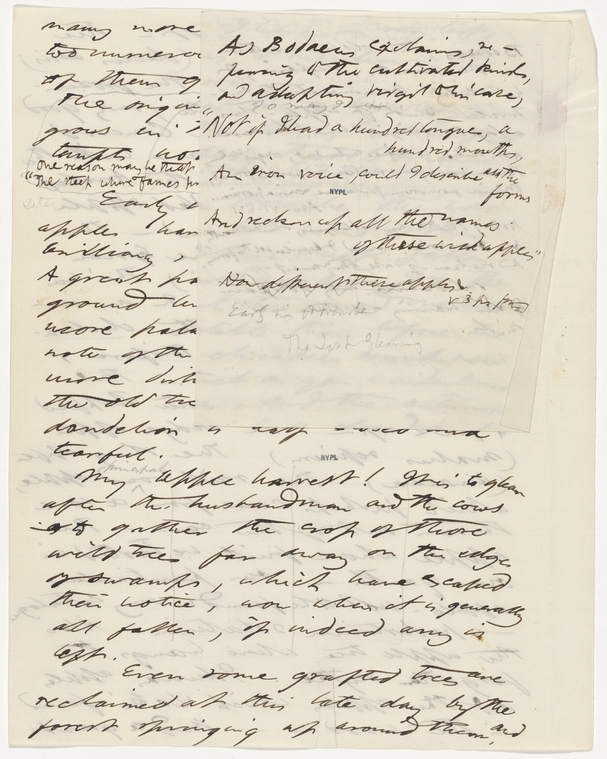 many more
too numerous
of them
The
grows in
One reason may be that
"The steep where Fame's
Early
apples
A great
ground
more
note of the
more
the old tree
dandelion is half closed and
tearful.
My annual apple harvest! It is to glean
after the husbandman and the cows
to gather the crop of those
wild trees far away on the edges
of swamps, which have escaped
their notice, now when it is generally
all fallen, if indeed any is
left.
Even some grafted trees are
reclaimed at this late day by the
forest springing up around them, and
As Bodaeus exclaims, re-
ferring to the cultivated kinds,
and adapting Virgil to his case,
"Not if I had a hundred tongues, a
hundred mouths,
An iron voice, could I describe all the
forms
And reckon up all the names
of these wild apples"
How different these apples
v 3 ps
Early in November
The Last Gleaning
NYPL
NYPL